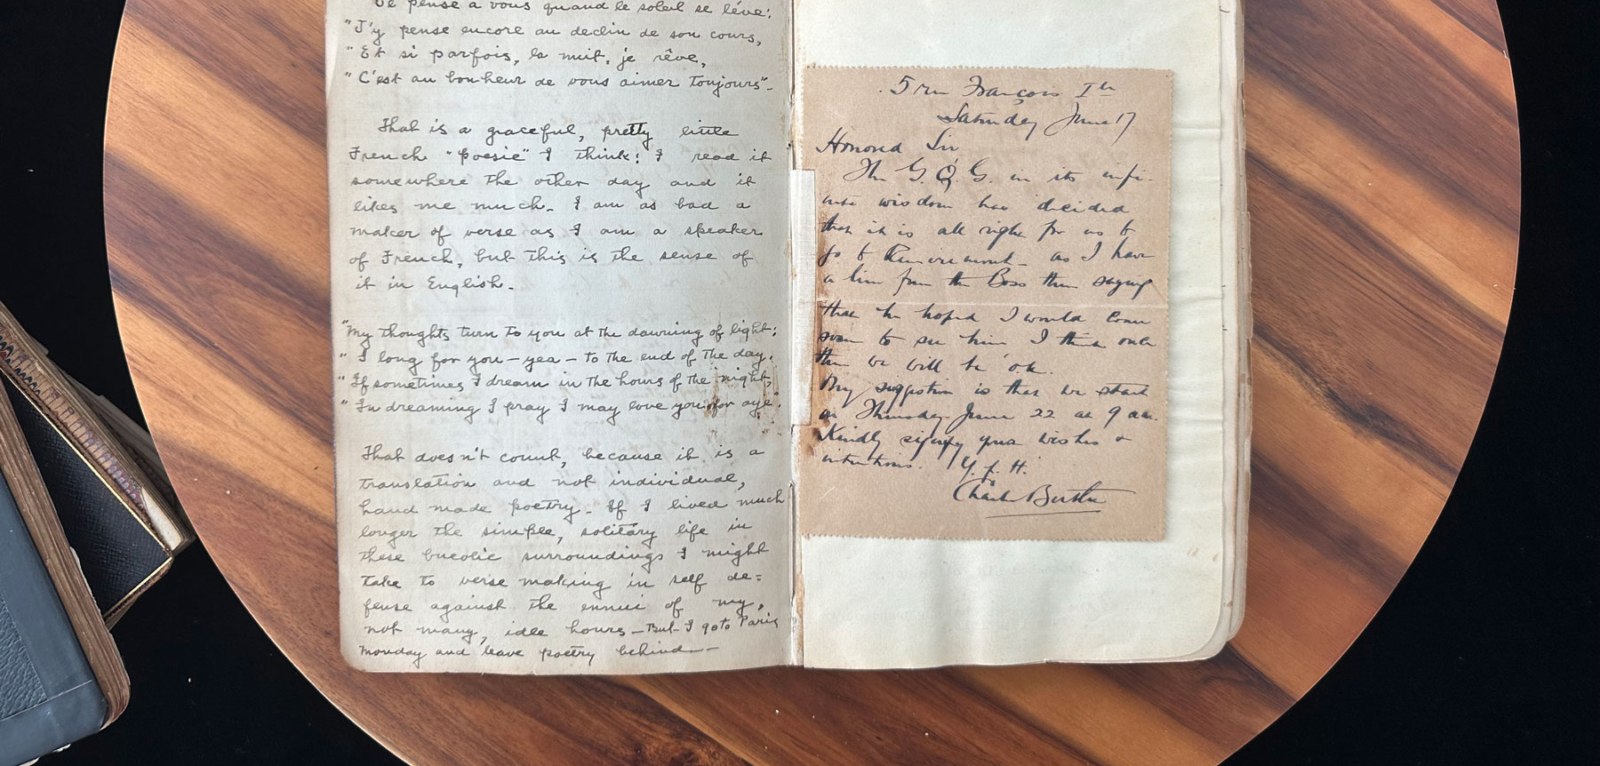 "Je pense à vous quand le soleil se lève:
"J'y pense encore au declin de son cours,
"Et si parfois, la nuit, je rêve,
"C'est au bonheur de vous aimer toujours"-
That is a graceful, pretty little
French "poesie" I think! I read it
somewhere the other day and it
likes me much. I am as bad a
maker of verse as I am a speaker
of French, but this is the sense of
it in English.
"My thoughts turn to you at the dawning of light:
"I long for you - yea - to the end of the day,
"If sometimes I dream in the hours of the night,
"In dreaming I pray I may love you for aye".
That doesn't count, because it is a
translation and not individual,
hand made poetry. If I lived much
longer the simple, solitary life in
these bucolic surroundings I might
take to verse making in self de=
fense against the ennui of my,
not many, idle hours - But I go to Paris
Monday and leave poetry behind -
5 rue François Ier
Saturday June 17
Honored Sir
The G.Q.G. in its infi-
nite wisdom has decided
that it is all right for us to
go to - as I have
a line from the Boss there saying
that he hoped I would come
soon to see him I think once
there we will be ok.
My suggestion is that we start
on Thursday June 22 at 9 am.
Kindly signify your wishes &
intentions. Y.f.H.
Charles